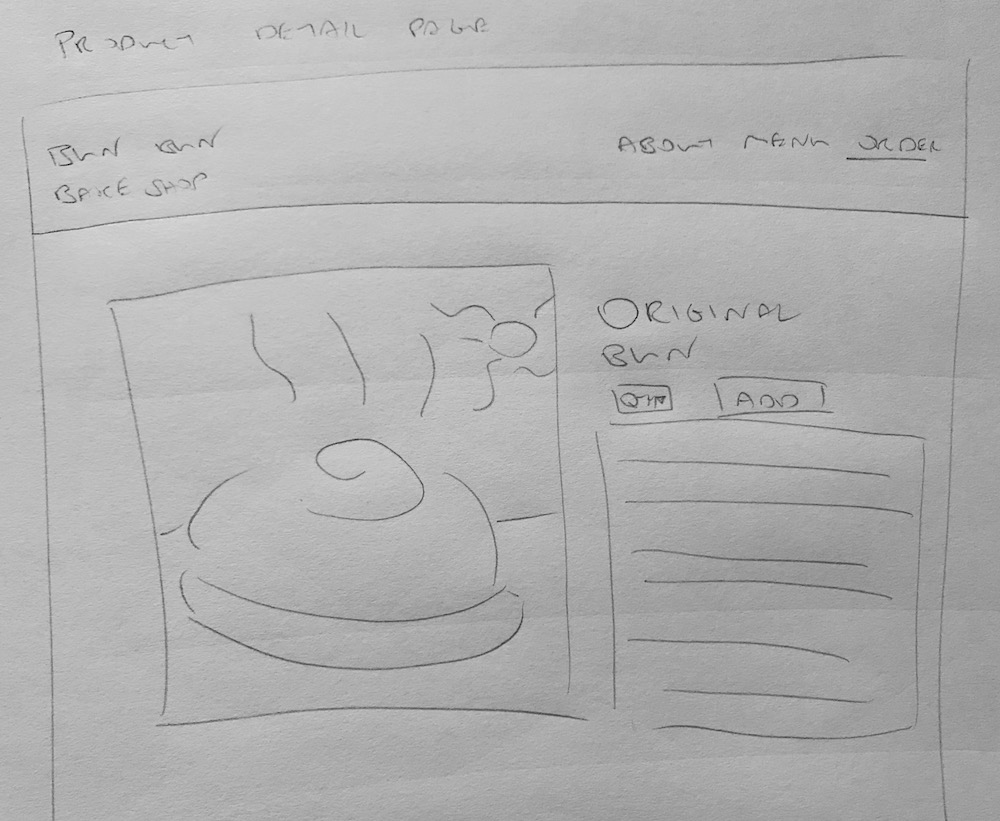 PRODUCT DETAIL PAGE
BUN BUN
BAKE SHOP
ABOUT MENU ORDER
ORIGINAL
BUN
QTY ADD